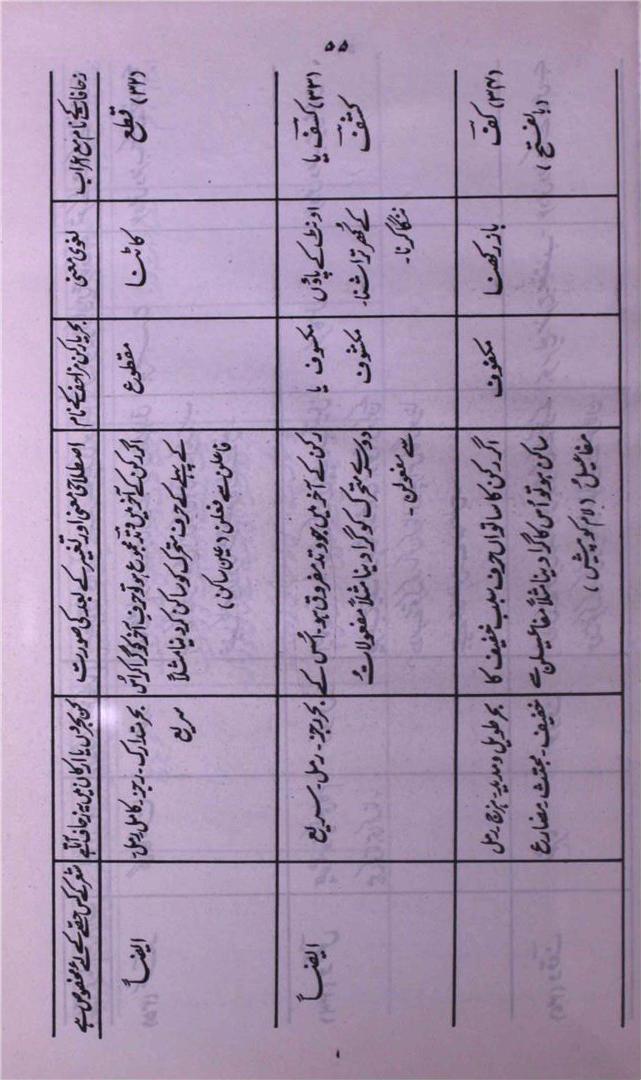 ۵۵
زحافات کے نام مع اعراب
لغوی معنی
بحر یا رکن مزاحف کے نام
اصطلاحی معنی اور تغیر کے بعد کی صورت
کن بحروں یا ارکان میں یہ زحاف آتا ہے
شعر کے کس حصے کے لئے مخصوص ہے
(۳۲) قطع
کاٹنا
مقطوع
اگر رکن کے آخر میں وتد مجموع ہو تو حرفِ آخر کو گرا کر اس
کے پہلے کے حرف متحرک کو ساکن کر دینا مثلاً
فاعلن سے فعلن (عین ساکن)
بحر متدارک۔ رجز۔ کامل۔ رمل۔
سریع
ایضاً
(۳۳) کسْف یا
کشْف
اونٹ کے پاؤں
کے کُھر تراشنا۔
ننگا کرنا۔
مکسوف یا
مکشوف
رکن کے آخر میں جو وتد مفروق ہو۔ اُس کے
دوسرے متحرک کو گرا دینا مثلاً مفعولاتُ
سے مفعولن۔
بحر رجز۔ رمل۔ سریع
ایضاً
(۳۴) کفّ
(بالفتح)
باز رکھنا
مکفوف
اگر رکن کا ساتواں حرف سبب خفیف کا
ساکن ہو تو اُس کا گرا دینا مثلاً مفاعیلن سے
مفاعیلُ (لام کو پیش)
بحر طویل و مدید۔ ہزج۔ رمل
خفیف۔ مجتث۔ مضارع